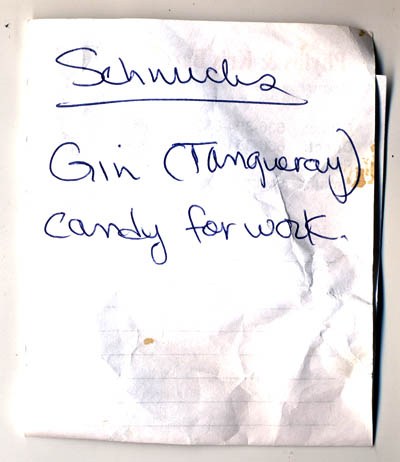 Schnucks
Gin (Tanqueray)
candy for work.